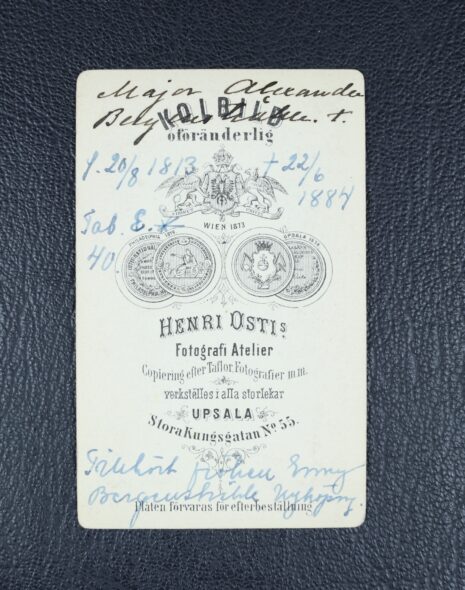 Major Alexander
Bergenstråhle. †.
KOLBILD
oföränderlig
f. 20/8 1813 † 22/6
1884
WIEN 1873
Tab. E.
40.
PHILADELPHIA 1876
UPSALA 1874
HENRI OSTIS
Fotografi Atelier
Copiering efter Taflor, Fotografier m.m.
verkställes i alla storlekar
UPSALA
Stora Kungsgatan No 55.
Tillhört fröken Emmy
Bergenstråhle Nyköping.
Plåten förvaras för efterbeställning